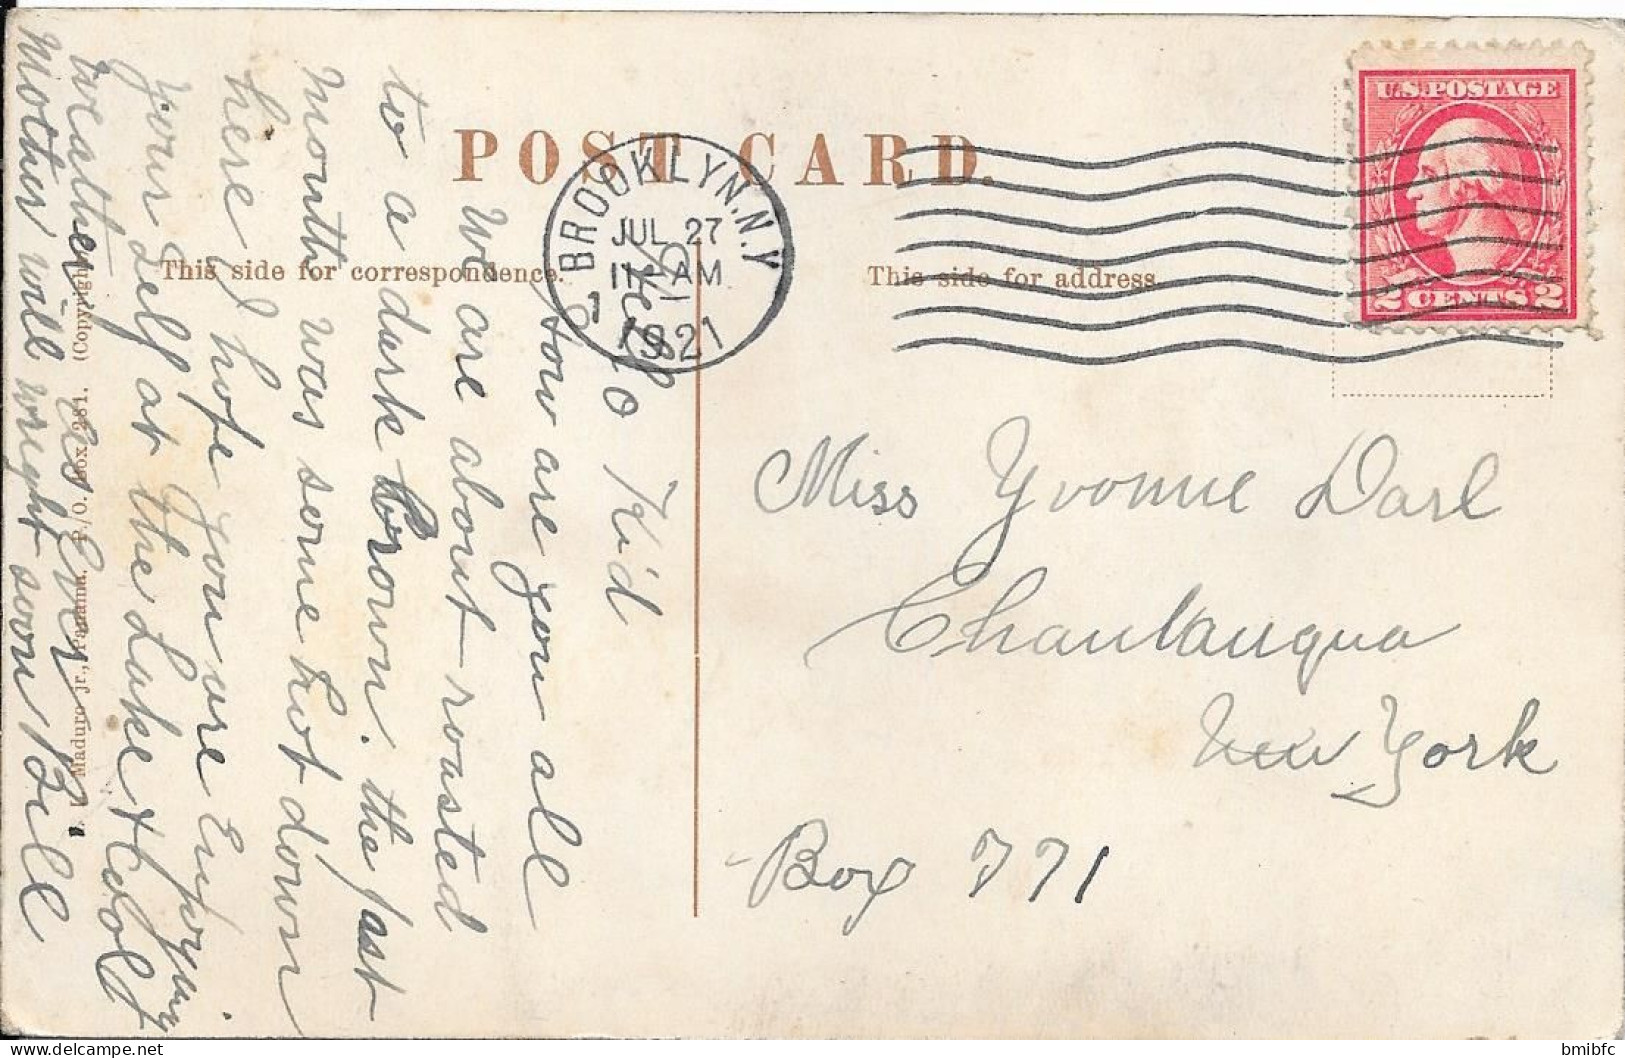 POST CARD.
This side for correspondence.
This side for address.
BROOKLYN, N.Y.
JUL 27
11 - AM
1921
1
U.S. POSTAGE
2 CENTS 2
Hello Kid
How are you all
We are about roasted
to a dark Brown. the last
month was some hot down
here I hope you are Enjoying
your self at the Lake & Cold
Weather as Ever
Mother will wright soon Bill
Miss Yvonne Darl
Chautauqua
New York
Box 771
Maduro jr., Panama. P./O. Box 281. (Copyright
bmibfc